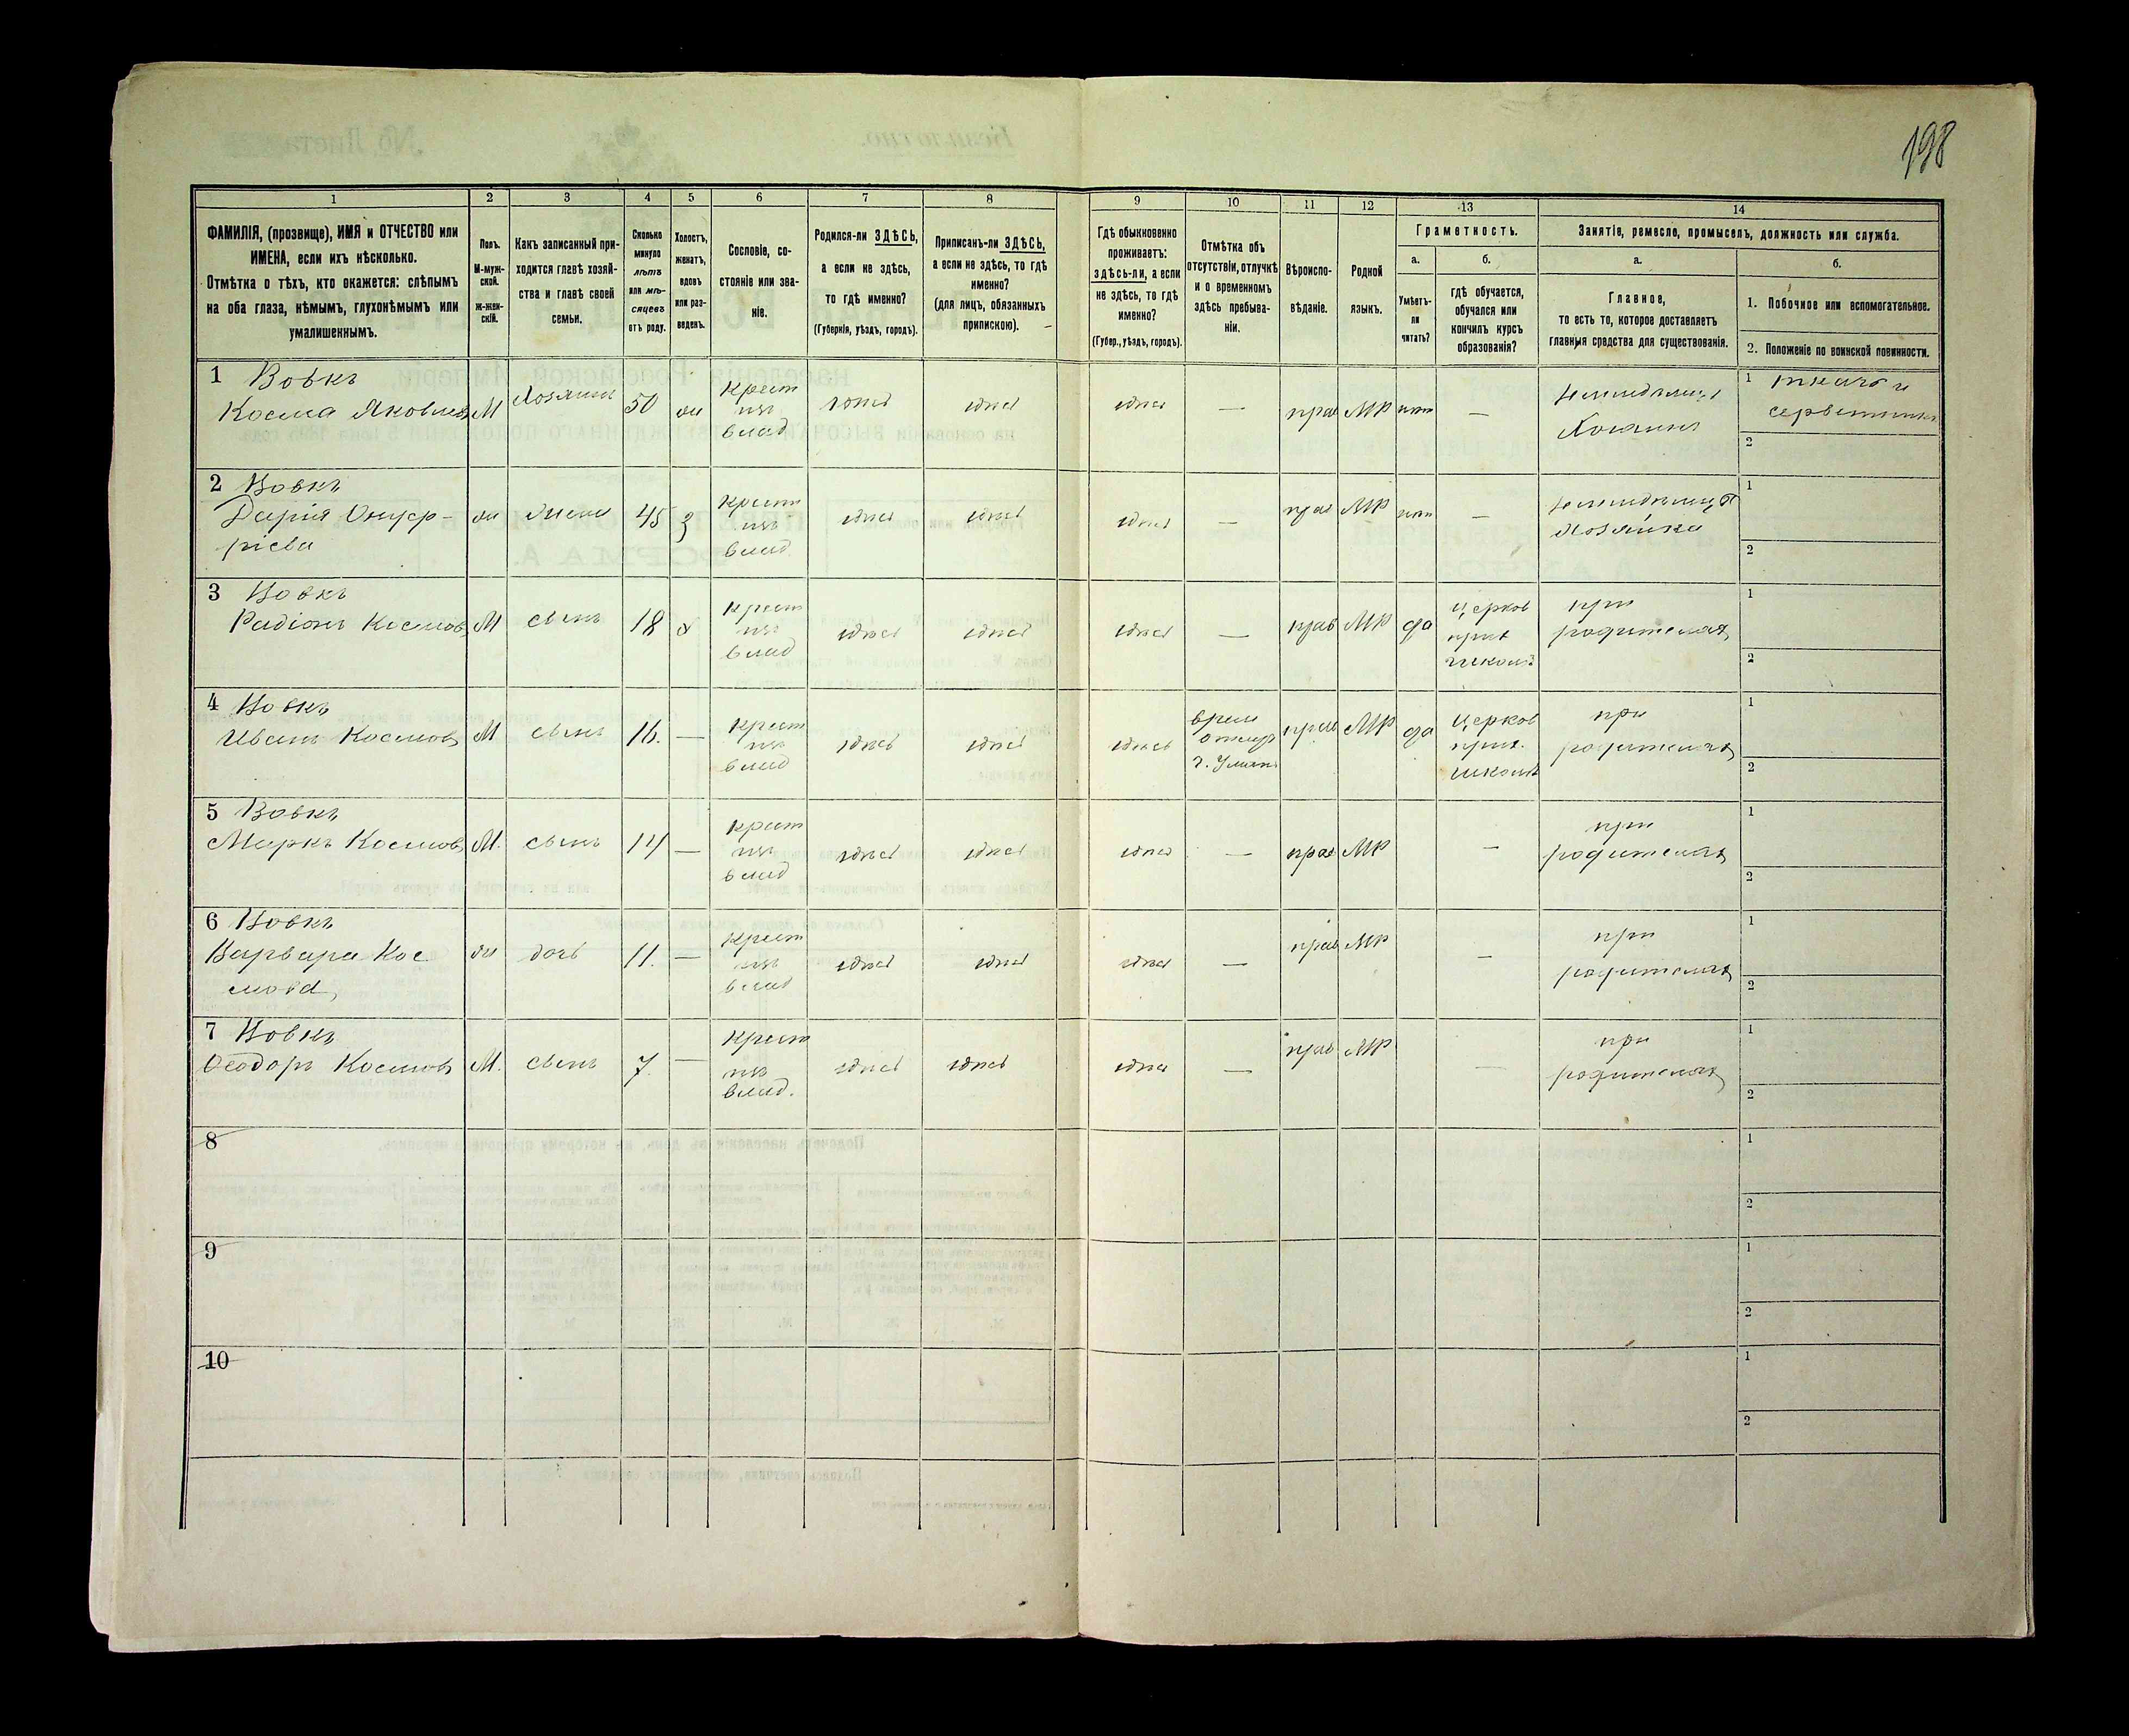 198
1 2 3 4 5 6 7 8 9 10 11 12 13 14
ФАМИЛІЯ, (прозвище), ИМЯ и ОТЧЕСТВО или
ИМЕНА, если ихъ нѣсколько.
Отмѣтка о тѣхъ, кто окажется: слѣпымъ
на оба глаза, нѣмымъ, глухонѣмымъ или
умалишеннымъ.
Полъ.
М-муж-
ской.
Ж-жен-
скій.
Какъ записанный при-
ходится главѣ хозяй-
ства и главѣ своей
семьи.
Сколько
минуло
лѣтъ
или мѣ-
сяцевъ
отъ роду.
Холостъ,
женатъ,
вдовъ
или раз-
веденъ.
Сословіе, со-
стояніе или зва-
ніе.
Родился-ли ЗДѢСЬ,
а если не здѣсь,
то гдѣ именно?
(Губернія, уѣздъ, городъ).
Приписанъ-ли ЗДѢСЬ,
а если не здѣсь, то гдѣ
именно?
(для лицъ, обязанныхъ
припискою).
Гдѣ обыкновенно
проживаетъ:
здѣсь-ли, а если
не здѣсь, то гдѣ
именно?
(Губер., уѣздъ, городъ).
Отмѣтка объ
отсутствіи, отлучкѣ
и о временномъ
здѣсь пребыва-
ніи.
Вѣроиспо-
вѣданіе.
Родной
языкъ.
Грамотность.
а.
Умѣетъ-
ли
читать?
б.
гдѣ обучается,
обучался или
кончилъ курсъ
образованія?
Занятіе, ремесло, промыселъ, должность или служба.
а.
Главное,
то есть то, которое доставляетъ
главныя средства для существованія.
б.
1. Побочное или вспомогательное.
2. Положеніе по воинской повинности.
1 Вовкъ
Косма Яковлевъ М хозяинъ 50 ж
Крест
изъ
влад
здѣсь здѣсь здѣсь — прав МР нѣтъ —
земледѣлецъ
Хозяинъ
1 ткачъ и
2
2 Вовкъ
Дарія Онуф-
ріева
ж жена 45 з
Крест
изъ
влад.
здѣсь здѣсь здѣсь — прав МР нѣтъ —
Хозяйка
1
2
3 Вовкъ
Радіонъ Космовъ М сынъ 18 х
Крест
изъ
влад
здѣсь здѣсь здѣсь — прав МР да
Церков
прих
школѣ
при
родителяхъ
1
2
4 Вовкъ
Иванъ Космовъ М сынъ 16. —
Крест
изъ
влад
здѣсь здѣсь здѣсь
врем
г. Умань
прав МР да
Церков
прих.
школѣ
при
родителяхъ
1
2
5 Вовкъ
Маркъ Космовъ М. сынъ 14 —
Крест
изъ
влад
здѣсь здѣсь здѣсь — прав МР —
при
родителяхъ
1
2
6 Вовкъ
Варвара Кос
мова
ж дочь 11. —
Крест
изъ
влад
здѣсь здѣсь здѣсь — прав МР —
при
родителяхъ
1
2
7 Вовкъ
Ѳеодоръ Космовъ М. сынъ 7. —
Крест
изъ
влад.
здѣсь здѣсь здѣсь — прав МР —
при
родителяхъ
1
2
8
1
2
9
1
2
10
1
2